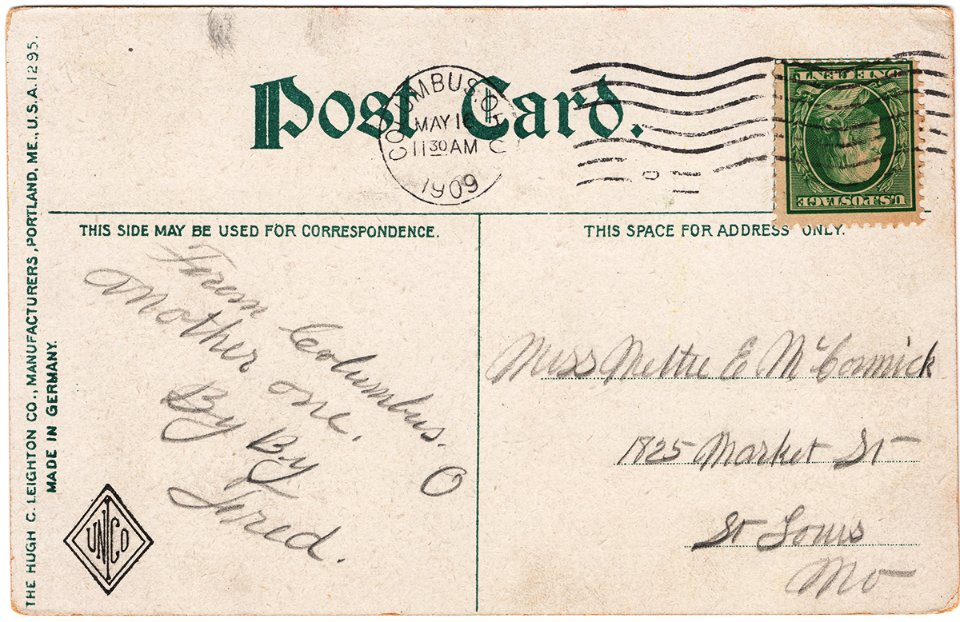 THE HUGH C. LEIGHTON CO., MANUFACTURERS, PORTLAND, ME., U.S.A. 1295.
MADE IN GERMANY.
Post Card.
COLUMBUS, O
MAY 16
11 30 AM
1909
U.S. POSTAGE
ONE CENT
THIS SIDE MAY BE USED FOR CORRESPONDENCE.
THIS SPACE FOR ADDRESS ONLY.
From Columbus. O
Another one.
By By
Fred.
Miss Nettie E McCormick
1825 Market St
St Louis
Mo
UNICO